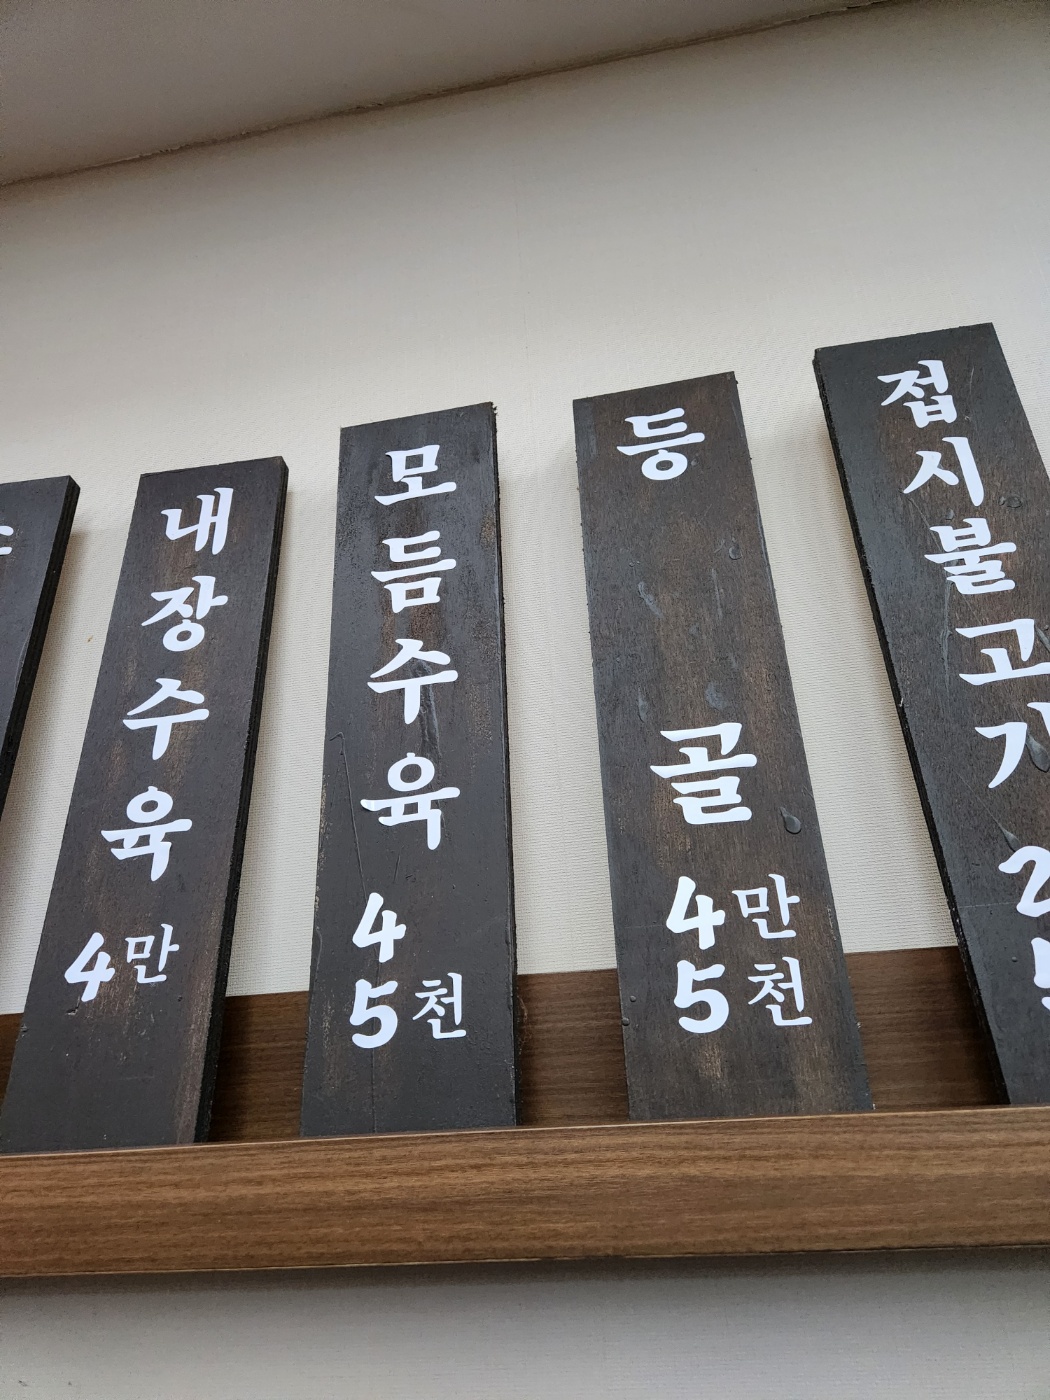 내장수육
4만
모듬수육
4
5천
등골
4만
5천
접시불고기
2
5